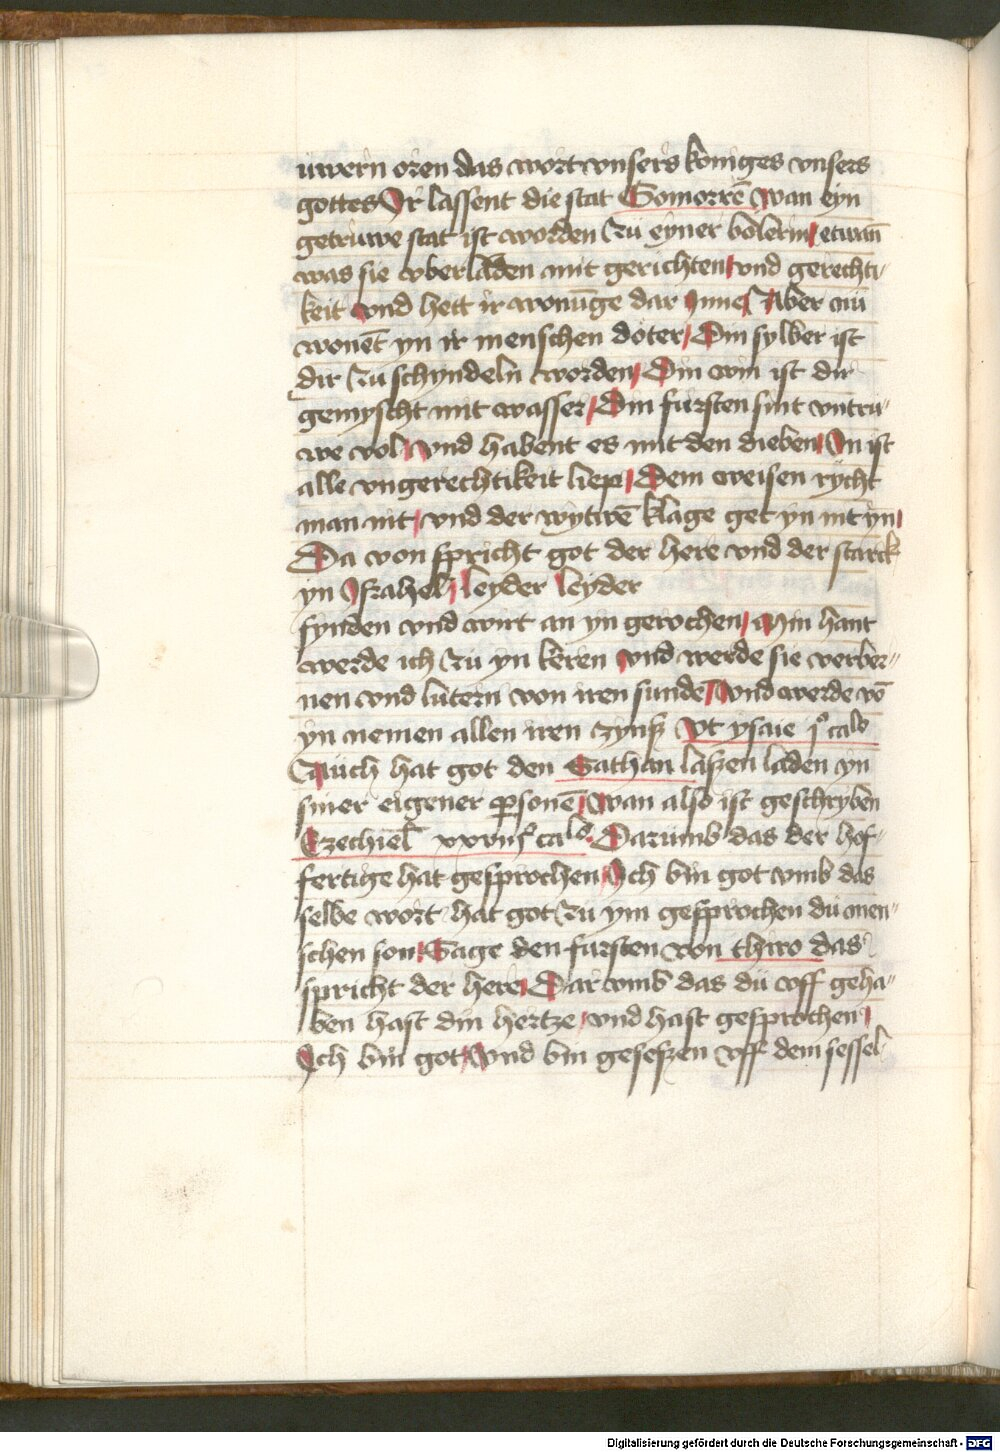 uwern oren das wort vnsers koniges vnsers
gottes Ir lassent die stat Gomorrē wan eyn
getruwe stat ist worden zu eyner bolerin / etwan
was sie vberladen mit gerichten / vnd gerechti
keit vnd hett ir wonūge dar Inne / Aber nu
wonēt yn ir menschen doter / Din sylber ist
dir zu schyndeln worden / Din win ist dir
gemyscht mit wasser / Din fursten sint vntru
we vol / vnd habent es mit den dieben / In ist
alle vngerechtikeit liep / Dem weisen rycht
man nit / vnd der wytwē klage get yn nit yn /
Da von spricht got der here vnd der starck
yn Israhel / leyder leyder
fynden vnd wirt an yn gerochen / Min hant
werde ich zu yn keren vnd werde sie verber
nen vnd lutern von iren sundē / vnd werde vō
yn nemen allen iren zynß Vt ysaie j° calo
Auch hat got den Sathan laßen laden yn
siner eigener ꝑsonē / wan also ist geschryben
Ezechiel xxviij calo Darumb das der hof
fertige hat gesprochen / Ich bin got vmb das
selbe wort hat got zu ym gesprochen du men
schen son / Sage den fursten von thiro das
spricht der here / Dar vmb das du vff geha
ben hast din hertze / vnd hast gesprochen /
Ich bin got / vnd bin geseßen vff dem sessel
Digitalisierung gefördert durch die Deutsche Forschungsgemeinschaft - DFG